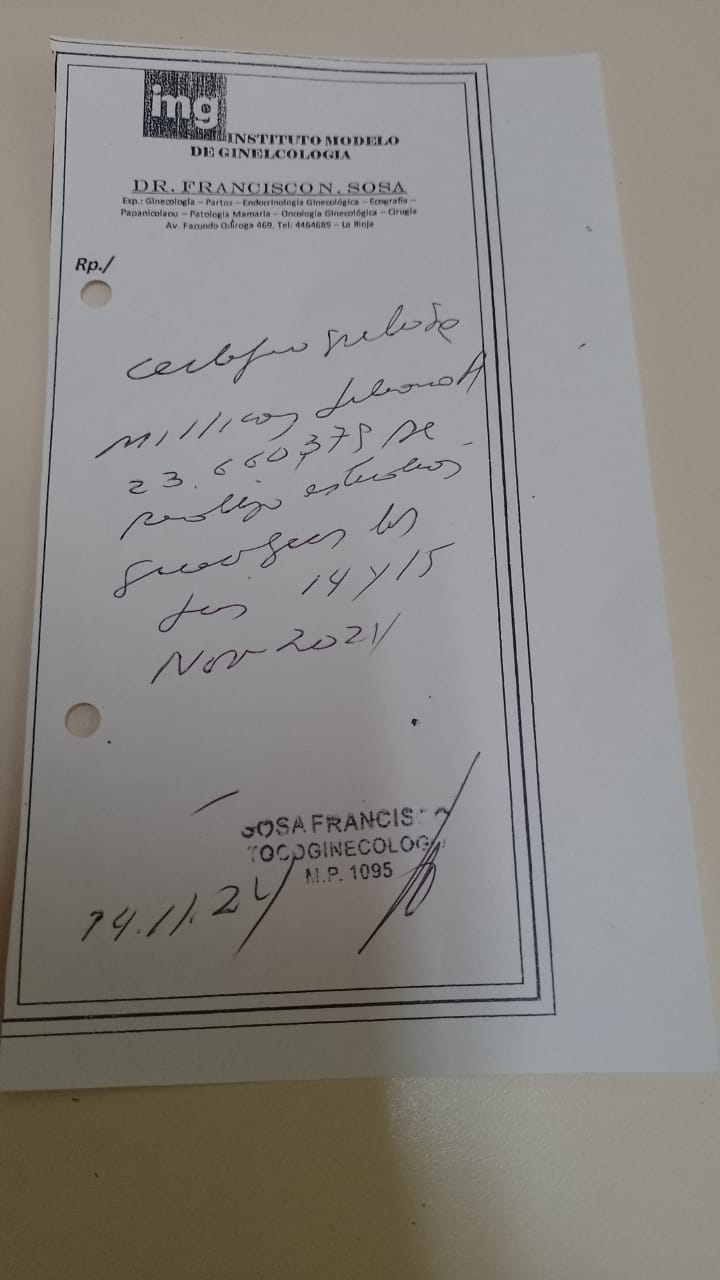 img
INSTITUTO MODELO
DE GINELCOLOGIA
DR. FRANCISCO N. SOSA
Esp.: Ginecología – Partos – Endocrinología Ginecológica – Ecografía –
Papanicolaou – Patología Mamaria – Oncología Ginecológica – Cirugía
Av. Facundo Quiroga 469. Tel: 4464689 – La Rioja
Rp./
certifico
23.660,379 se
estudios
los
14 y 15
Nov 2024
SOSA FRANCISCO
TOCOGINECOLOG
M.P. 1095
14.11.24